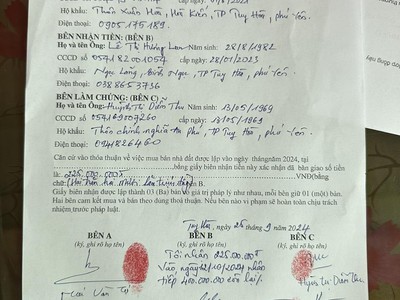 Hộ khẩu: Thôn Xuân Hòa, Hòa Kiến, TP Tuy Hòa, Phú Yên.
Điện thoại: 0905175189.
BÊN NHẬN TIỀN: (BÊN B)
Họ và tên Ông: Lê Thị Hương Lan Năm sinh: 28/8/1982
CCCD số 054182001054 cấp ngày: 28/01/2023
Hộ khẩu: Ngọc Lãng, Bình Ngọc, TP Tuy Hòa, phú yên.
Điện thoại: 0386653736
BÊN LÀM CHỨNG: (BÊN C)
Họ và tên Ông: Huỳnh Thị Diễm Thu 13/05/1969
CCCD số 054169007260 cấp ngày: 18/05/1969
Hộ khẩu: Thôn chính nghĩa An Phú, TP Tuy Hòa, phú yên.
Điện thoại: 0948826460
Căn cứ vào thỏa thuận về việc mua bán nhà đất được lập vào ngày tháng năm 2024, tại
bằng giấy biên nhận tiền này xác nhận đã bàn giao số tiền
là: 225.000.000đ VNĐ(bằng
chữ: Hai Trăm hai Mươi Lăm triệu B.
Giấy biên nhận được lập thành 03 (Ba) bản có giá trị pháp lý như nhau, mỗi bên giữ 01 (một) bản.
Hai bên cam kết mua và bán theo đúng thoả thuận. Nếu bên nào vi phạm sẽ hoàn toàn chịu trách
nhiệm trước pháp luật.
Tuy Hòa, ngày 25 tháng 9 năm 2024
BÊN A BÊN B BÊN C
(ký, ghi rõ họ tên) (ký, ghi rõ họ tên) (ký, ghi rõ họ tên)
Tôi nhận 225.000.000đ
Vào ngày 12/10/2024 nhận
tiếp 400.000.000
Huỳnh Thị Diễm Thu